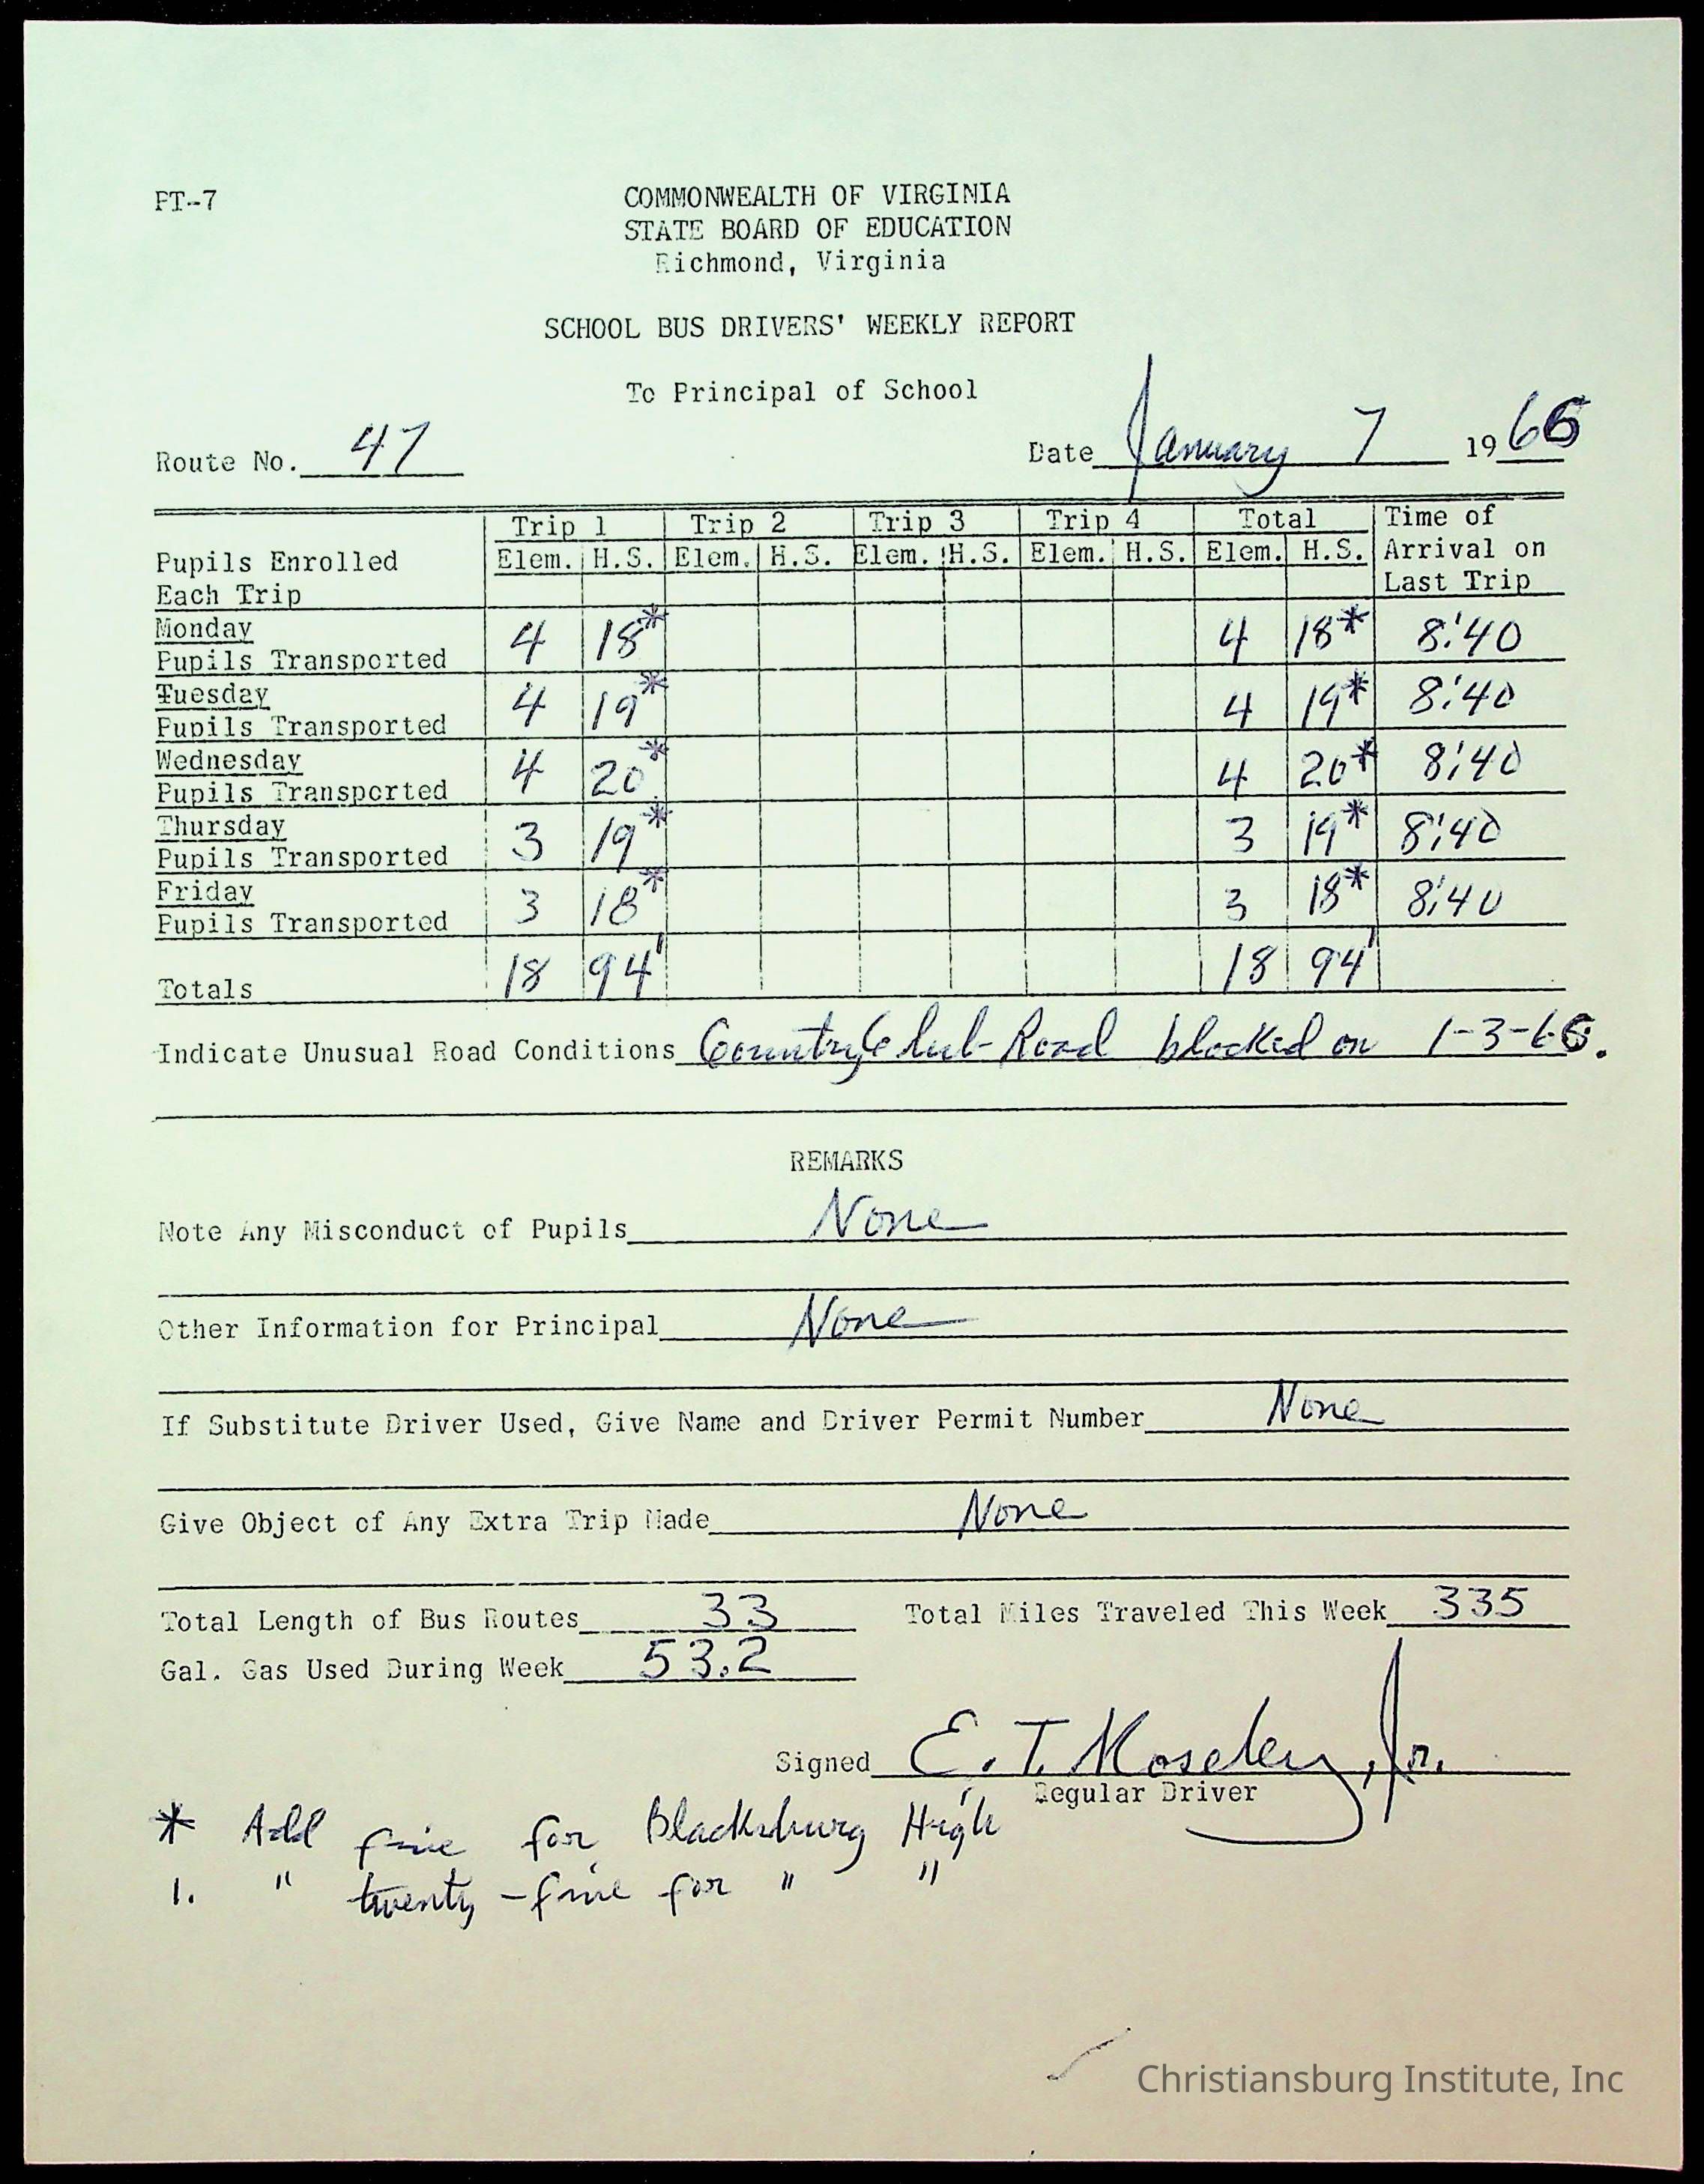 PT-7
COMMONWEALTH OF VIRGINIA
STATE BOARD OF EDUCATION
Richmond, Virginia
SCHOOL BUS DRIVERS' WEEKLY REPORT
To Principal of School
Route No. 47 Date January 7 1966
Trip 1 Trip 2 Trip 3 Trip 4 Total Time of
Pupils Enrolled Elem. H.S. Elem. H.S. Elem. H.S. Elem. H.S. Elem. H.S. Arrival on
Each Trip Last Trip
Monday
Pupils Transported 4 18* 4 18* 8:40
Tuesday
Pupils Transported 4 19* 4 19* 8:40
Wednesday
Pupils Transported 4 20* 4 20* 8:40
Thursday
Pupils Transported 3 19* 3 19* 8:40
Friday
Pupils Transported 3 18* 3 18* 8:40
Totals 18 94' 18 94'
Indicate Unusual Road Conditions Country Club Road blocked on 1-3-66.
REMARKS
Note Any Misconduct of Pupils None
Other Information for Principal None
If Substitute Driver Used, Give Name and Driver Permit Number None
Give Object of Any Extra Trip Made None
Total Length of Bus Routes 33 Total Miles Traveled This Week 335
Gal. Gas Used During Week 53.2
Signed E. T. Moseley, Jr.
Regular Driver
* Add five for Blacksburg High
1. " twenty-five for " "
Christiansburg Institute, Inc